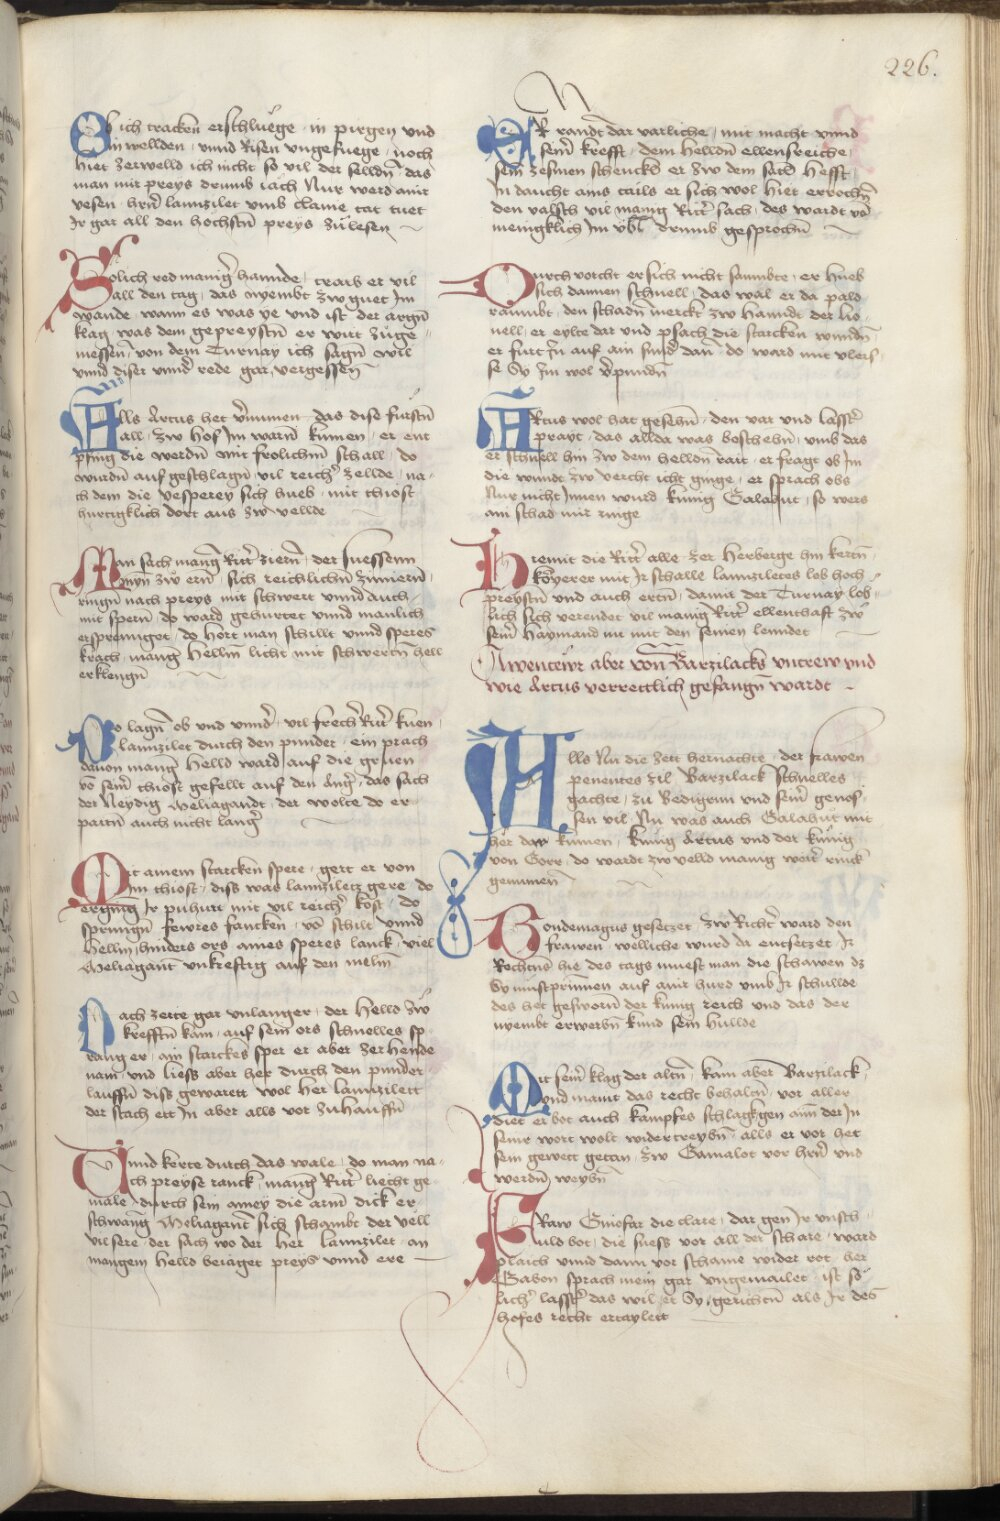 226.
Ob ich tracken erschluege in pirgen vnd
in wellden vnnd Risen vngefuege noch
hiet zerwelld ich nicht so vil der selldn̄ das
man mir preys drumb iach Nur werd amir
vesen hrn̄ lannzilet vmb clame tat tuet
Ir gar all den hochstn̄ preys zu lesen
Solich red manig hannde traib er vil
all den tag das nyembt zw guet Im
wande wann es was ye vnd ist der argn̄
klag was dem gepreystn̄ er wirt zuge
messen von dem Turnay ich sagn̄ wil
vnnd diser vnnd rede gar vergessen
Alls Artus het vernumen das dise furstn̄
all zw hof Im warn̄ kumen er ent
pfing die werdn̄ mit frolichm̄ schall do
wurdn̄ auf geschlagn̄ vil reich zellde na
ch dem die vesperey sich hueb mit thiost
hurtigklich dort aus zw vellde
Man sach manig Ritt ziern̄ der suessenn
myn zw ern̄ sich reichlichn̄ zimiern̄
ringn̄ nach preys mit schwert vnnd auch
mit spern̄ do ward gehurtet vnnd manlich
ersprennget do hort man schillt vnnd speres
krach manig hellm licht mit schwertn̄ hell
erklengn̄
Do lagn̄ ob vnd vnnd vil frech Ritt kuen
lannzilet durch den punder ein prach
dauon manig helld ward auf die gruen
vō sein thiost gefellt auf den ang das sach
der Neydig Meliagandt der wolte do er
paitn̄ auch nicht lang
Mit ainem starcken spere gert er von
im thiost diss was lannzilett gere do
erging Ir puhurt mit vil reich kost do
sprungn̄ fewres fancken vō schilt vnnd
hellm hinders ors aines speres lanck viel
Meliagant vnkreftig auf den melm̄
Nach zeite gar vnlanger der helld zw
krefftn̄ kam auf sein ors schnelles sp
rang er ain starckes sper er aber zer hende
nam vnd liess aber her durch den punder
lauffn̄ diss gewarett wol her lannzilett
der stach ett In aber alls vor zuhauffn̄
Vnnd kerte durch das wale do man na
ch preyse ranck manig Ritt liecht ge
male durch sein amey die arm̄ dick er
schwang Meliagant sich schambt der vell
vil sere der sach wo der her lannzilet an
mangem helld beiaget preys vnnd ere
ER randt dar varliche mit macht vnnd
sein krefft dem helldn̄ ellensreiche
sein zesmen schenckel er zw dem satl hefft
In daucht ains tails er sich wol hiet errochn̄
den valsch vil manig Ritt sach des wardt vō
menigklich Im vbl drumb gesprochn̄
Durch vorcht er sich nicht sambte er hueb
sich dannen schnell das wal er da pald
raumbt den schadn̄ merckt zw hanndt der lio
nell er eylte dar vnd psach die starcken wundn̄
er furt In auf ain sinnd dan do ward mit vleys
se Sy Im wol verpundn̄
Artus wol hat gesehn̄ den vat vnd laste
prayt das allda was beschehn̄ vmb das
er schnell hin zw dem helldn̄ rait er fragt ob Im
die wundt zw verch icht ginge er sprach obs
Nur nicht Innen wurd kunig Galahut so wers
am schad mir ringe
Hiemit die Ritt alle zer herberge hin kertn̄
koyerer mit Ir schalle lannziletes lob hoch
preystn̄ vnd auch ertn̄ damit der Turnay lob
lich sich verendet vil manig Ritt ellenthaft zw
sein haymand nu mit den seinen lenndet
Awentewr aber von Barzilacks vntrew vnd
wie Artus verretlich gefangn̄ wardt
Alls Nu die zeit hernachte der frawen
penentes zil Barzilack schnelles
gachte zu Bedigran vnd sein genos
sen vil Nu was auch Galahut mit
her dar kumen kunig Artus vnd der kunig
von Gorr do wardt zw velld manig weit rinck
genumen
Bondemagus gesetzet zw Richt ward den
frawen welliche wurd da entsetzet Ir
Rechtns hie des tags muest man die schawen dz
Sy muest prinnen auf ainr hurd vmb Ir schullde
des het gesworn̄ der kunig reich vnd das der
nyembt erwerbn̄ kund sein hullde
Mit sein klag der altn̄ kam aber Barzilack
vnd maint das recht behaltn̄ vor aller
diet er bot auch kampfes schlagkgen ainr der In
seine wort wolt widertreybn̄ alls er vor het
sein gewett getan zw Gamalot vor hrn̄ vnd
werdn̄ weybn̄
Fraw Ginefar die clare dar gen Ir vnsch
uld bot die suess vor all der schare ward
plaich vnnd dann vor schame wider rot her
Gabon sprach mein gar vngemailet ist so
lich last das wil er Sy gerichtn̄ als Ir des
hofes recht ertaylett